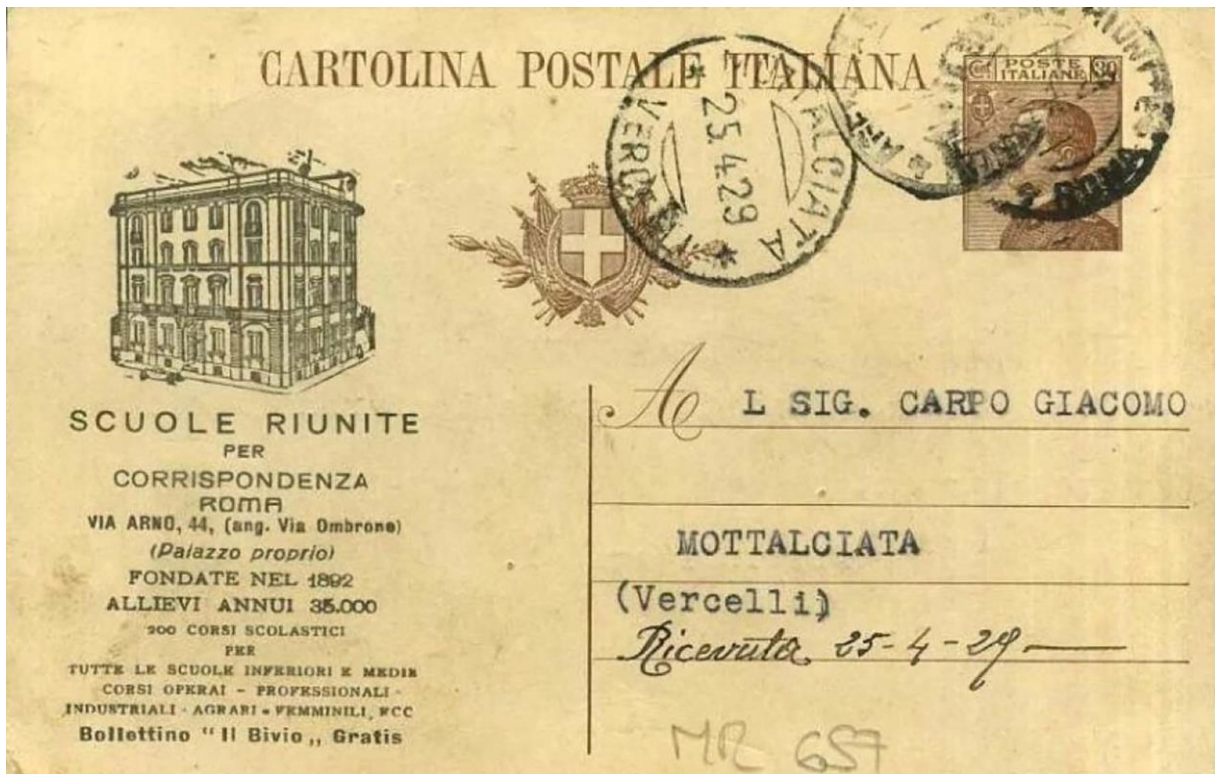 CARTOLINA POSTALE ITALIANA
Ct POSTE 30
ITALIANE
MOTTALCIATA
25.4.29
ROMA
SCUOLE RIUNITE
PER
CORRISPONDENZA
ROMA
VIA ARNO, 44, (ang. Via Ombrone)
(Palazzo proprio)
FONDATE NEL 1892
ALLIEVI ANNUI 35.000
200 CORSI SCOLASTICI
PER
TUTTE LE SCUOLE INFERIORI E MEDIE
CORSI OPERAI - PROFESSIONALI -
INDUSTRIALI - AGRARI - FEMMINILI, ECC
Bollettino "Il Bivio„ Gratis
A L SIG. CARPO GIACOMO
MOTTALCIATA
(Vercelli)
Ricevuta 25-4-29
MR 657